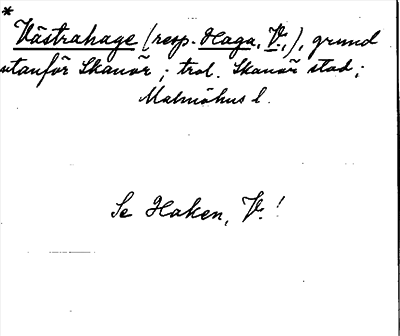 *
Västrahage (resp. Haga, V.,), grund
utanför Skanör; trol. Skanör stad;
Malmöhus l.
Se Haken, V.!